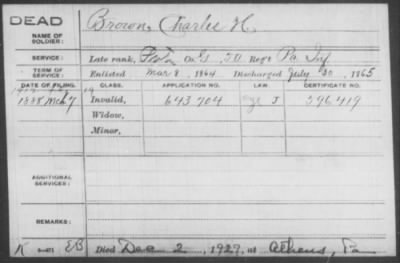 DEAD
NAME OF SOLDIER: Brown, Charles H.
SERVICE: Late rank, Co. G, 50 Reg't Pa Inf
TERM OF SERVICE: Enlisted Mar 8, 1864 Discharged July 30, 1865
DATE OF FILING. CLASS. APPLICATION NO. LAW. CERTIFICATE NO.
1888 Mch 7 Invalid, 643704 J 396419
Widow,
Minor,
ADDITIONAL SERVICES:
REMARKS:
Died Dec 2, 1929, at Athens, Pa